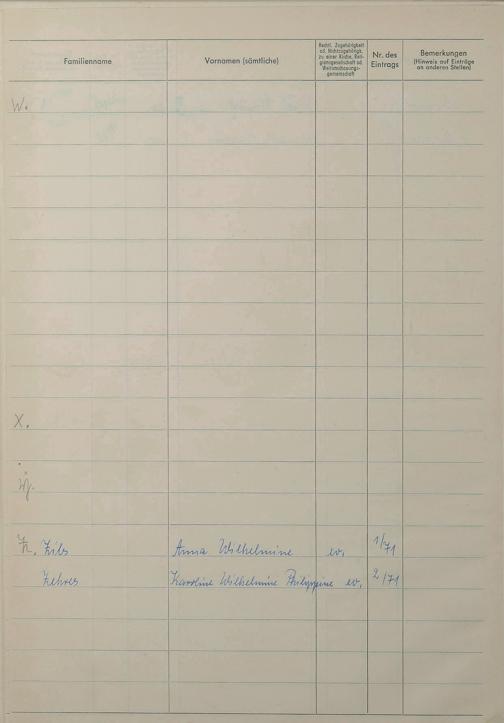 Familienname Vornamen (sämtliche) Rechtl. Zugehörigkeit od. Nichtzugehörigk. zu einer Kirche, Religionsgesellschaft od. Weltanschauungsgemeinschaft Nr. des Eintrags Bemerkungen (Hinweis auf Einträge an anderen Stellen)
W.
X.
Y.
Z. Zibs Anna Wilhelmine ev. 1/71
Zehres Karoline Wilhelmine Philippine ev. 2/71